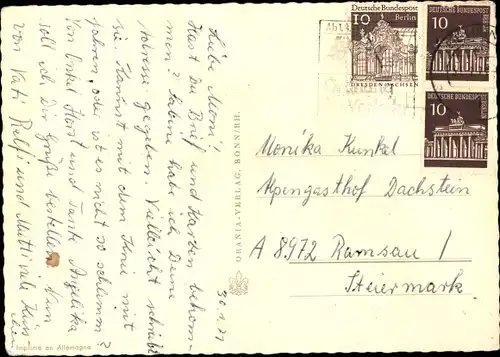 Liebe Moni,
Hast Du Brief und Karten bekom-
men? Sabine habe ich Deine
Adresse gegeben. Vielleicht schreibt
sie. Kannst mit dem Knie mit
fahren, oder ist es nicht so schlimm?
Von Onkel Horst und Tante Angelika
soll ich Dir Grüße bestellen. Nun
von Vati Ralfi und Mutti viele Küs-
30.1.71
ORANIA-VERLAG, BONN/RH.
Imprimé en Allemagne
Deutsche Bundespost
10 Berlin
DRESDEN-SACHSEN
DEUTSCHE BUNDESPOST
BERLIN
10
DEUTSCHE BUNDESPOST
BERLIN
10
Monika Kunkel
Alpengasthof Dachstein
A 8972 Ramsau /
Steiermark